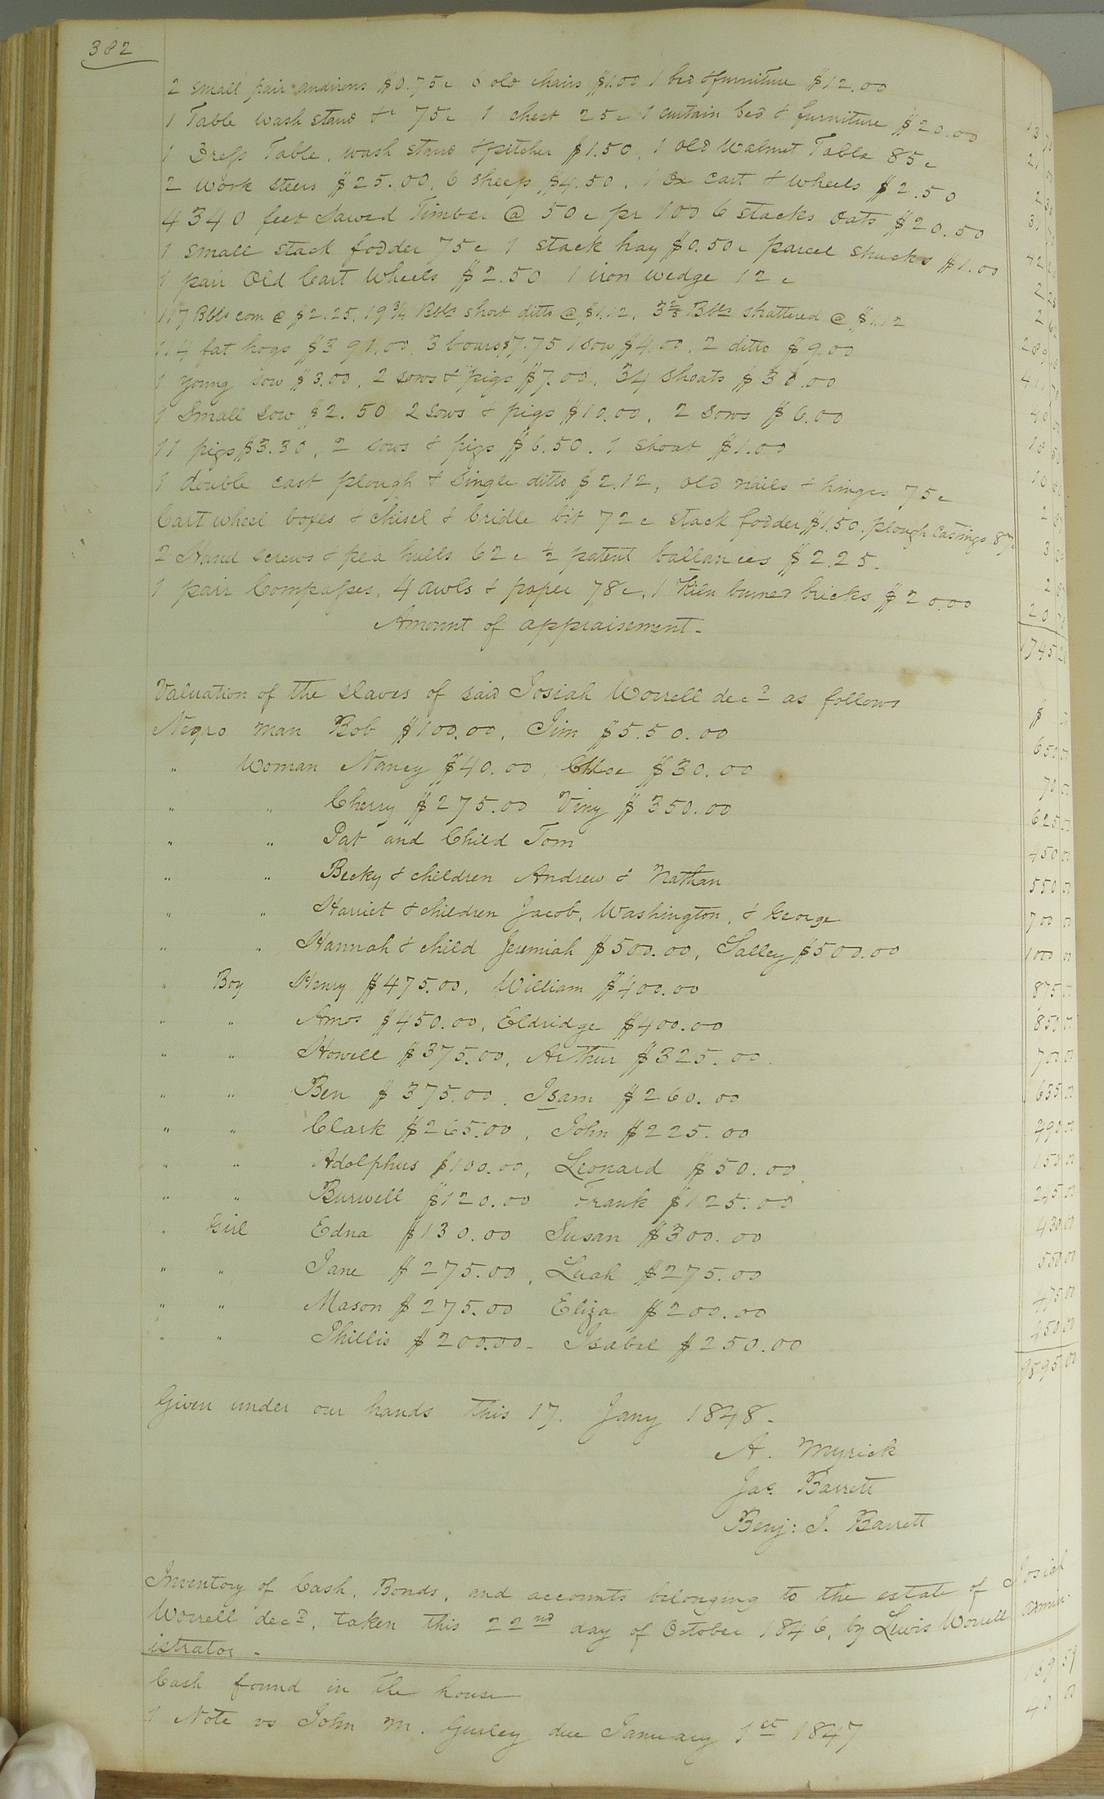 382
2 small pair andirons $0.75c 6 old chairs $1.00 1 bed & furniture $12.00
1 Table wash stand &c 75c 1 chest 25c 1 curtain bed & furniture $20.00
1 Dress Table, wash stand & pitcher $1.50, 1 old Walnut Table 85c
2 work steers $25.00, 6 sheep $4.50, 1 Ox cart & wheels $2.50
4340 feet Sawed Timber @ 50c pr 100 6 stacks oats $20.50
1 small stack fodder 75c 1 stack hay $0.50c parcel shucks $1.00
1 pair Old Cart Wheels $2.50 1 iron wedge 12c
117 Bbls corn @ $2.25, 19¾ Bbls short ditto @ $1.12, Bbls shattered @ $1.12
114 fat hogs $391.00, 3 boars $7.75 1 sow $4.00, 2 ditto $9.00
1 young sow $3.00, 2 sows & pigs $7.00, 34 shoats $30.00
1 Small sow $2.50 2 sows & pigs $10.00, 2 sows $6.00
11 pigs $3.30, 2 sows & pigs $6.50. 1 shoat $1.00
1 double cast plough & single ditto $2.12, old nails & hinges 75c
Cart wheel boxes & chisel & bridle bit 72c stack fodder $1.50, plough castings
2 Hand screws & pea hulls 62c ½ patent ballances $2.25.
1 pair Compasses, 4 awls & paper 78c, 1 Kiln burned bricks $20.00
Amount of appraisement - 1745
Valuation of the slaves of said Josiah Worrell decd as follows $
Negro man Bob $100.00, Jim $550.00 650
" Woman Nancy $40.00, Chloe $30.00 70 00
" " Cherry $275.00 Viny $350.00 625 00
" " Pat and Child Tom 450 00
" " Becky & children Andrew & Nathan 550 00
" " Harriet & children Jacob, Washington, & George 700 00
" " Hannah & child Jeremiah $500.00, Salley $500.00 1000 00
" Boy Henry $475.00, William $400.00 875 00
" " Amos $450.00, Eldridge $400.00 850 00
" " Howell $375.00, Arthur $325.00 700 00
" " Ben $375.00. Isam $260.00 635 00
" " Clark $265.00, John $225.00 490 00
" " Adolphus $100.00, Leonard $50.00, 150 00
" " Burwell $120.00 Frank $125.00 245 00
" Girl Edna $130.00 Susan $300.00 430 00
" " Jane $275.00, Leah $275.00 550 00
" " Mason $275.00 Eliza $200.00 475 00
" " Phillis $200.00 - Isabel $250.00 450 00
9595 00
Given under our hands this 17. Jany 1848 -
A. Myrick
Jas. Barrett
Benj: J. Barrett
Inventory of Cash, Bonds, and accounts belonging to the estate of Josiah
Worrell decd, taken this 22nd day of October 1846, by Lewis Worrell admin-
istrator -
Cash found in the house 159 59
1 Note vs John M. Gurley due January 1st 1847 40 00